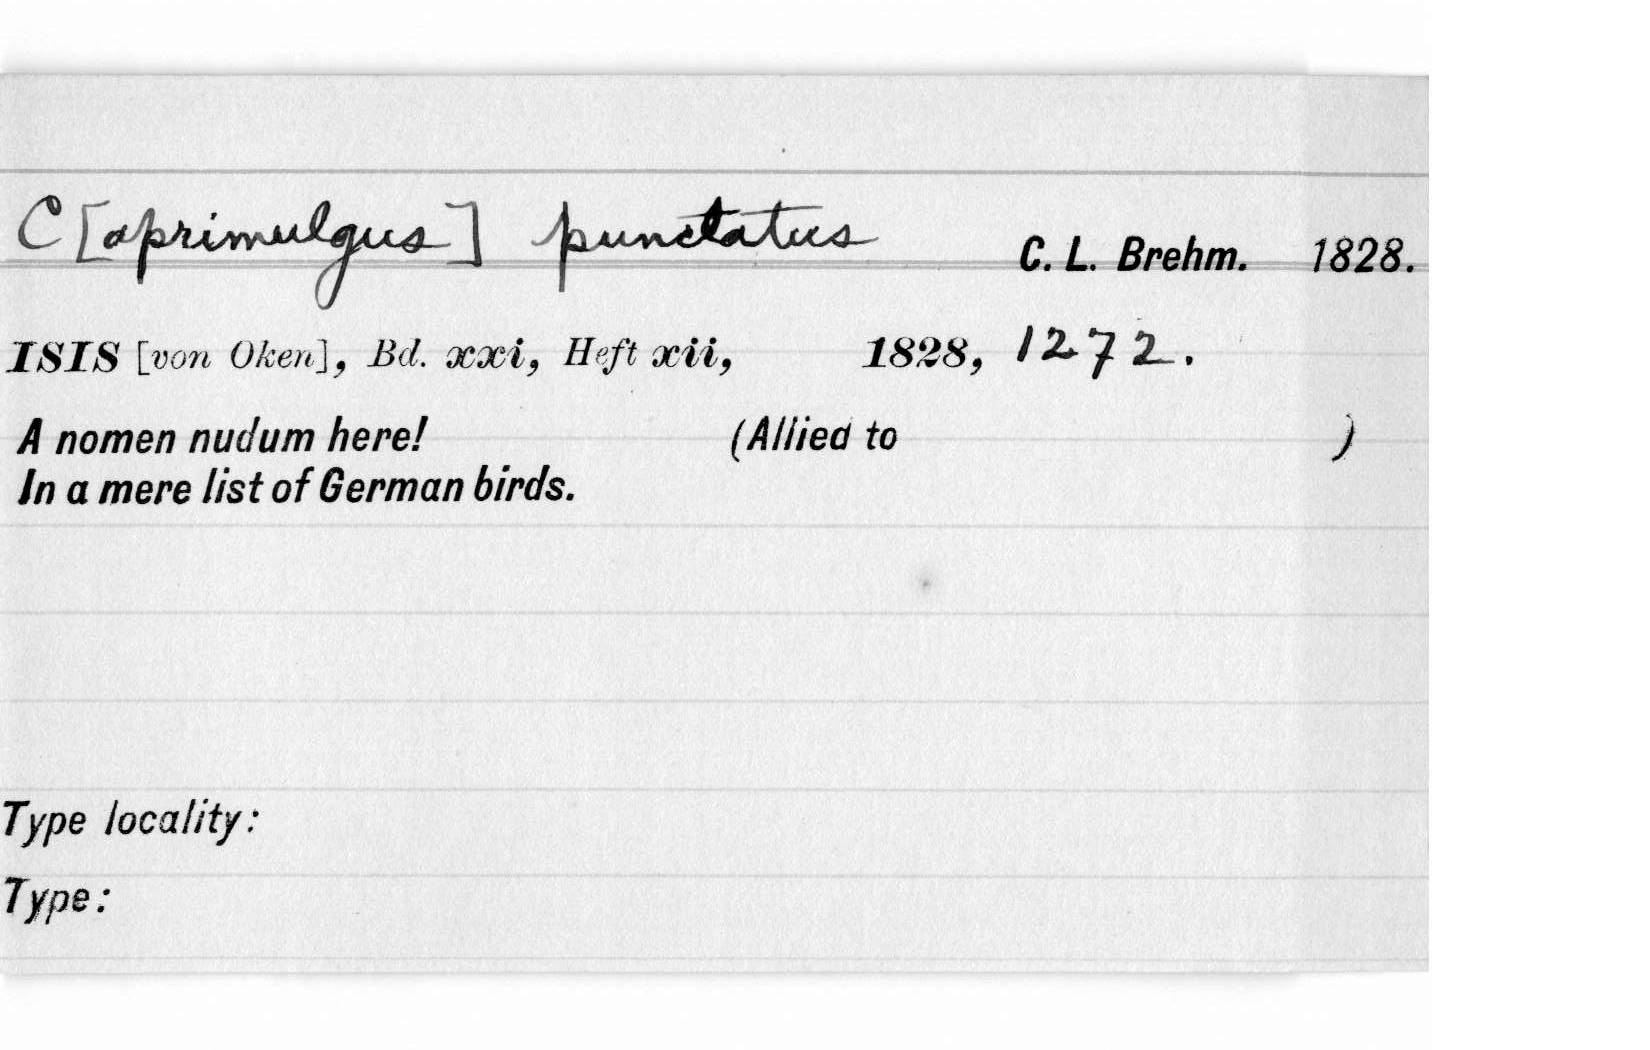 C[aprimulgus] punctatus C. L. Brehm. 1828.
ISIS [von Oken], Bd. xxi, Heft xii, 1828, 1272.
A nomen nudum here! (Allied to )
In a mere list of German birds.
Type locality:
Type: